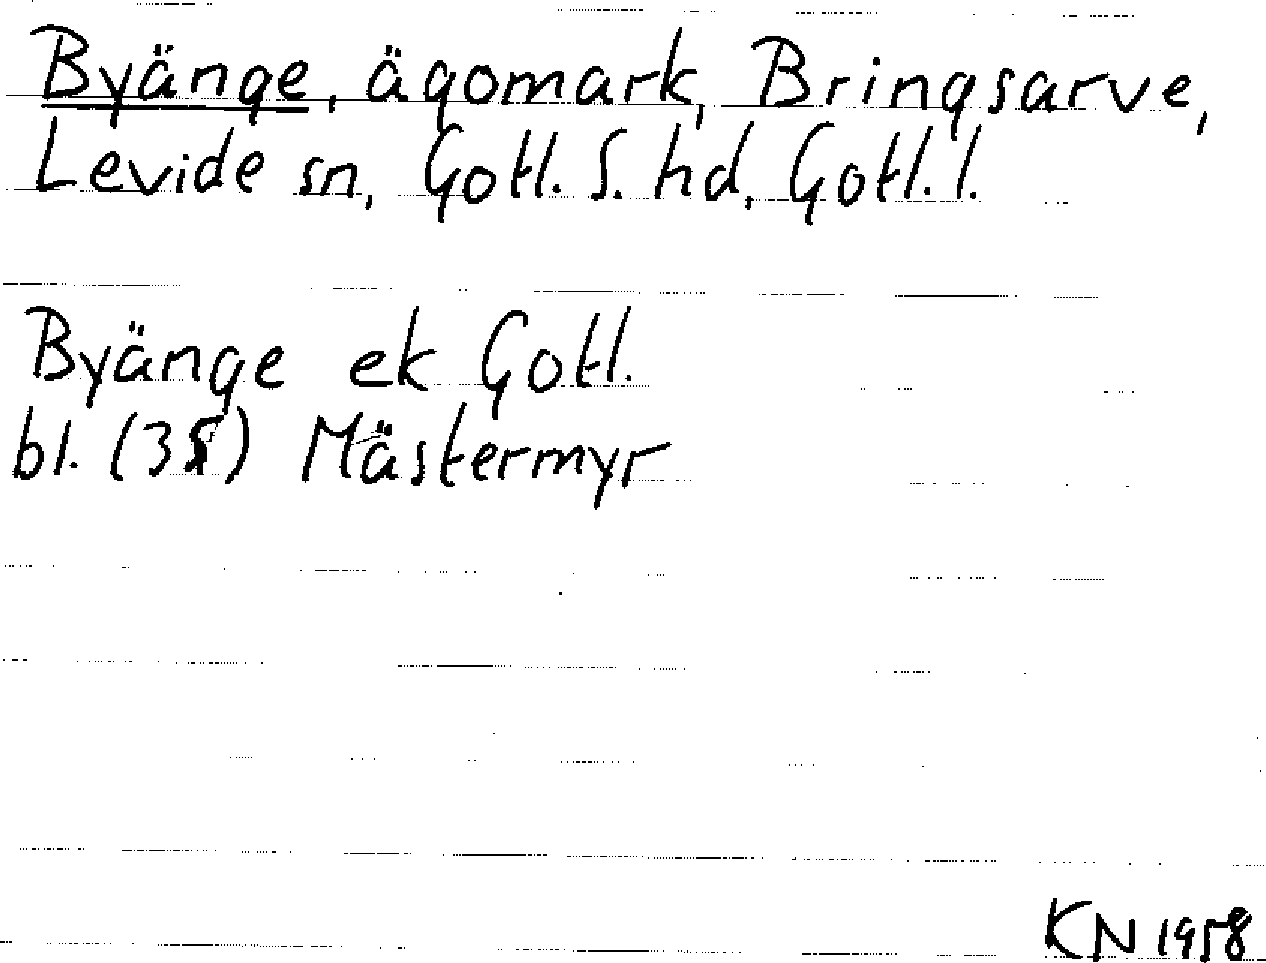 Byänge, ägomark, Bringsarve,
Levide sn, Gotl. S. hd, Gotl. l.
Byänge ek Gotl.
bl. Mästermyr
KN 1958